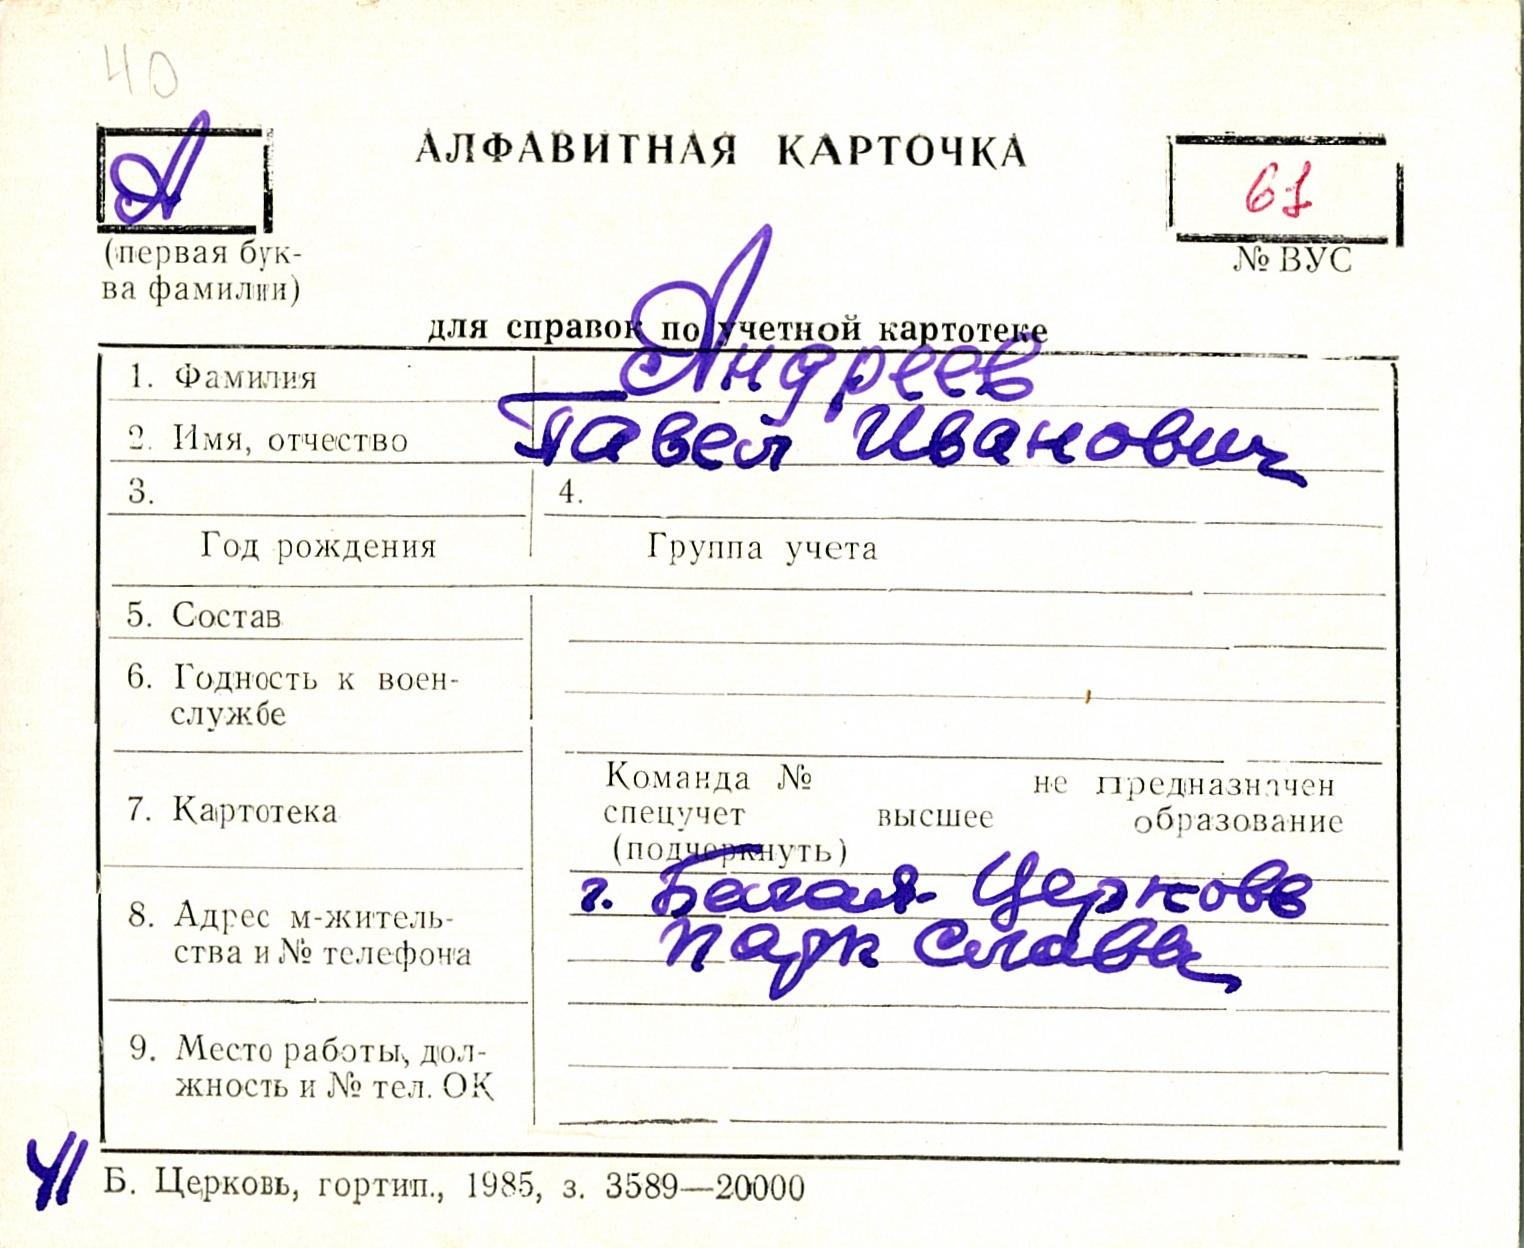 40
А
АЛФАВИТНАЯ КАРТОЧКА
61
(первая бук-
ва фамилии)
№ ВУС
для справок по учетной картотеке
1. Фамилия Андреев
2. Имя, отчество Павел Иванович
3. 4.
Год рождения Группа учета
5. Состав
6. Годность к воен-
службе
Команда № не предназначен
7. Картотека
спецучет высшее образование
(подчеркнуть)
г. Белая Церковь
8. Адрес м-житель-
ства и № телефона
парк Слава
9. Место работы, дол-
жность и № тел. ОК
41
Б. Церковь, гортип., 1985, з. 3589—20000